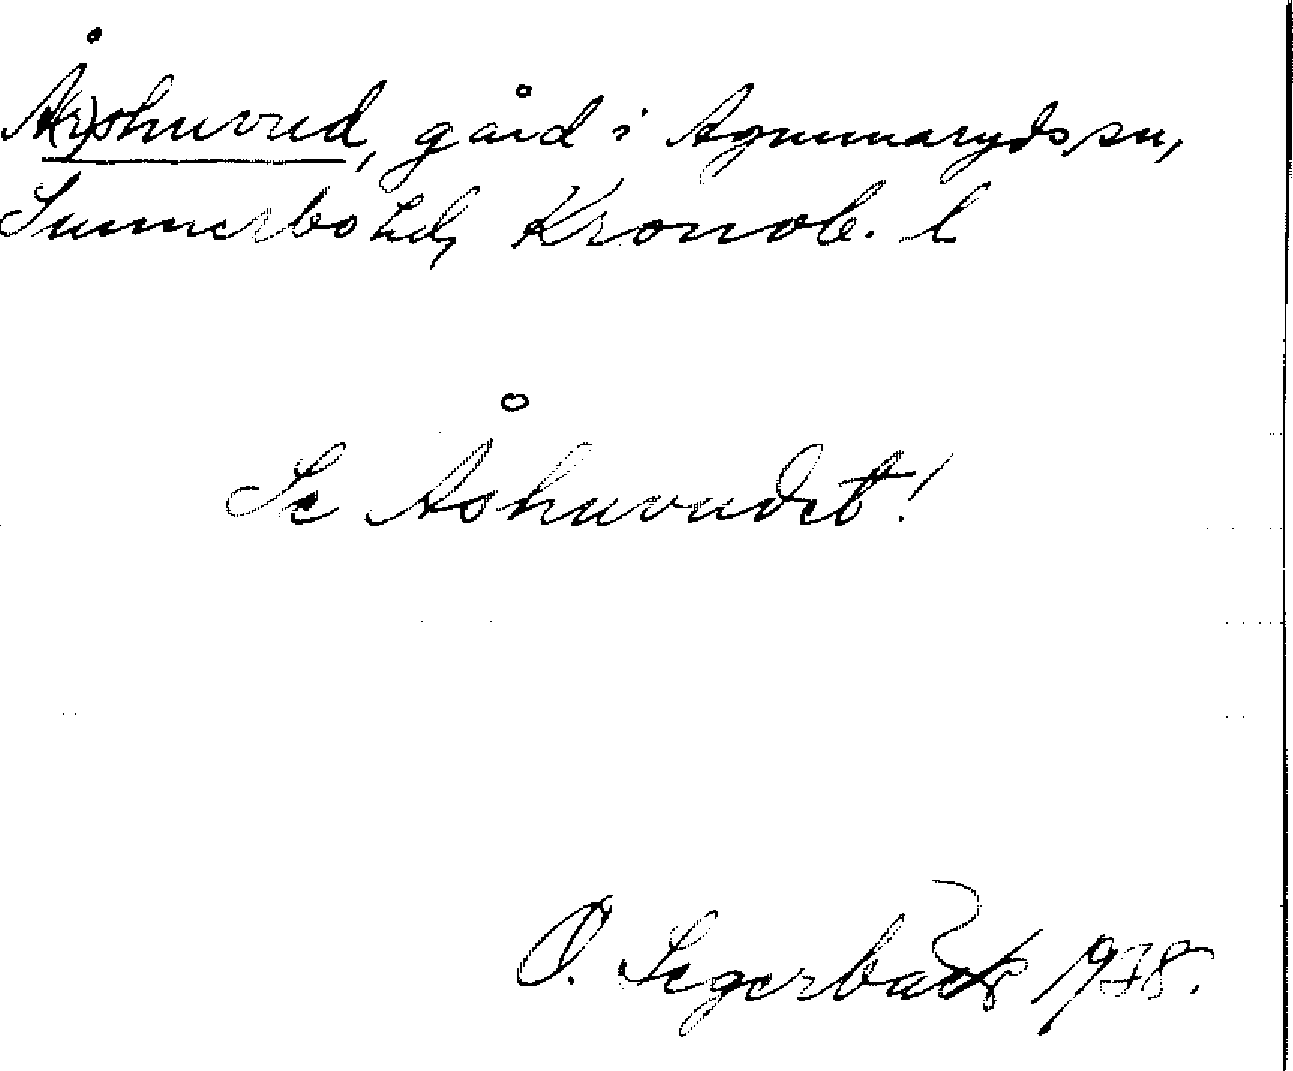 Å(r)shuvud, gård i Agunnaryds sn,
Sunnerbo hd, Kronob. l
Se Åshuvudet!
O. Segerbäck 1938.